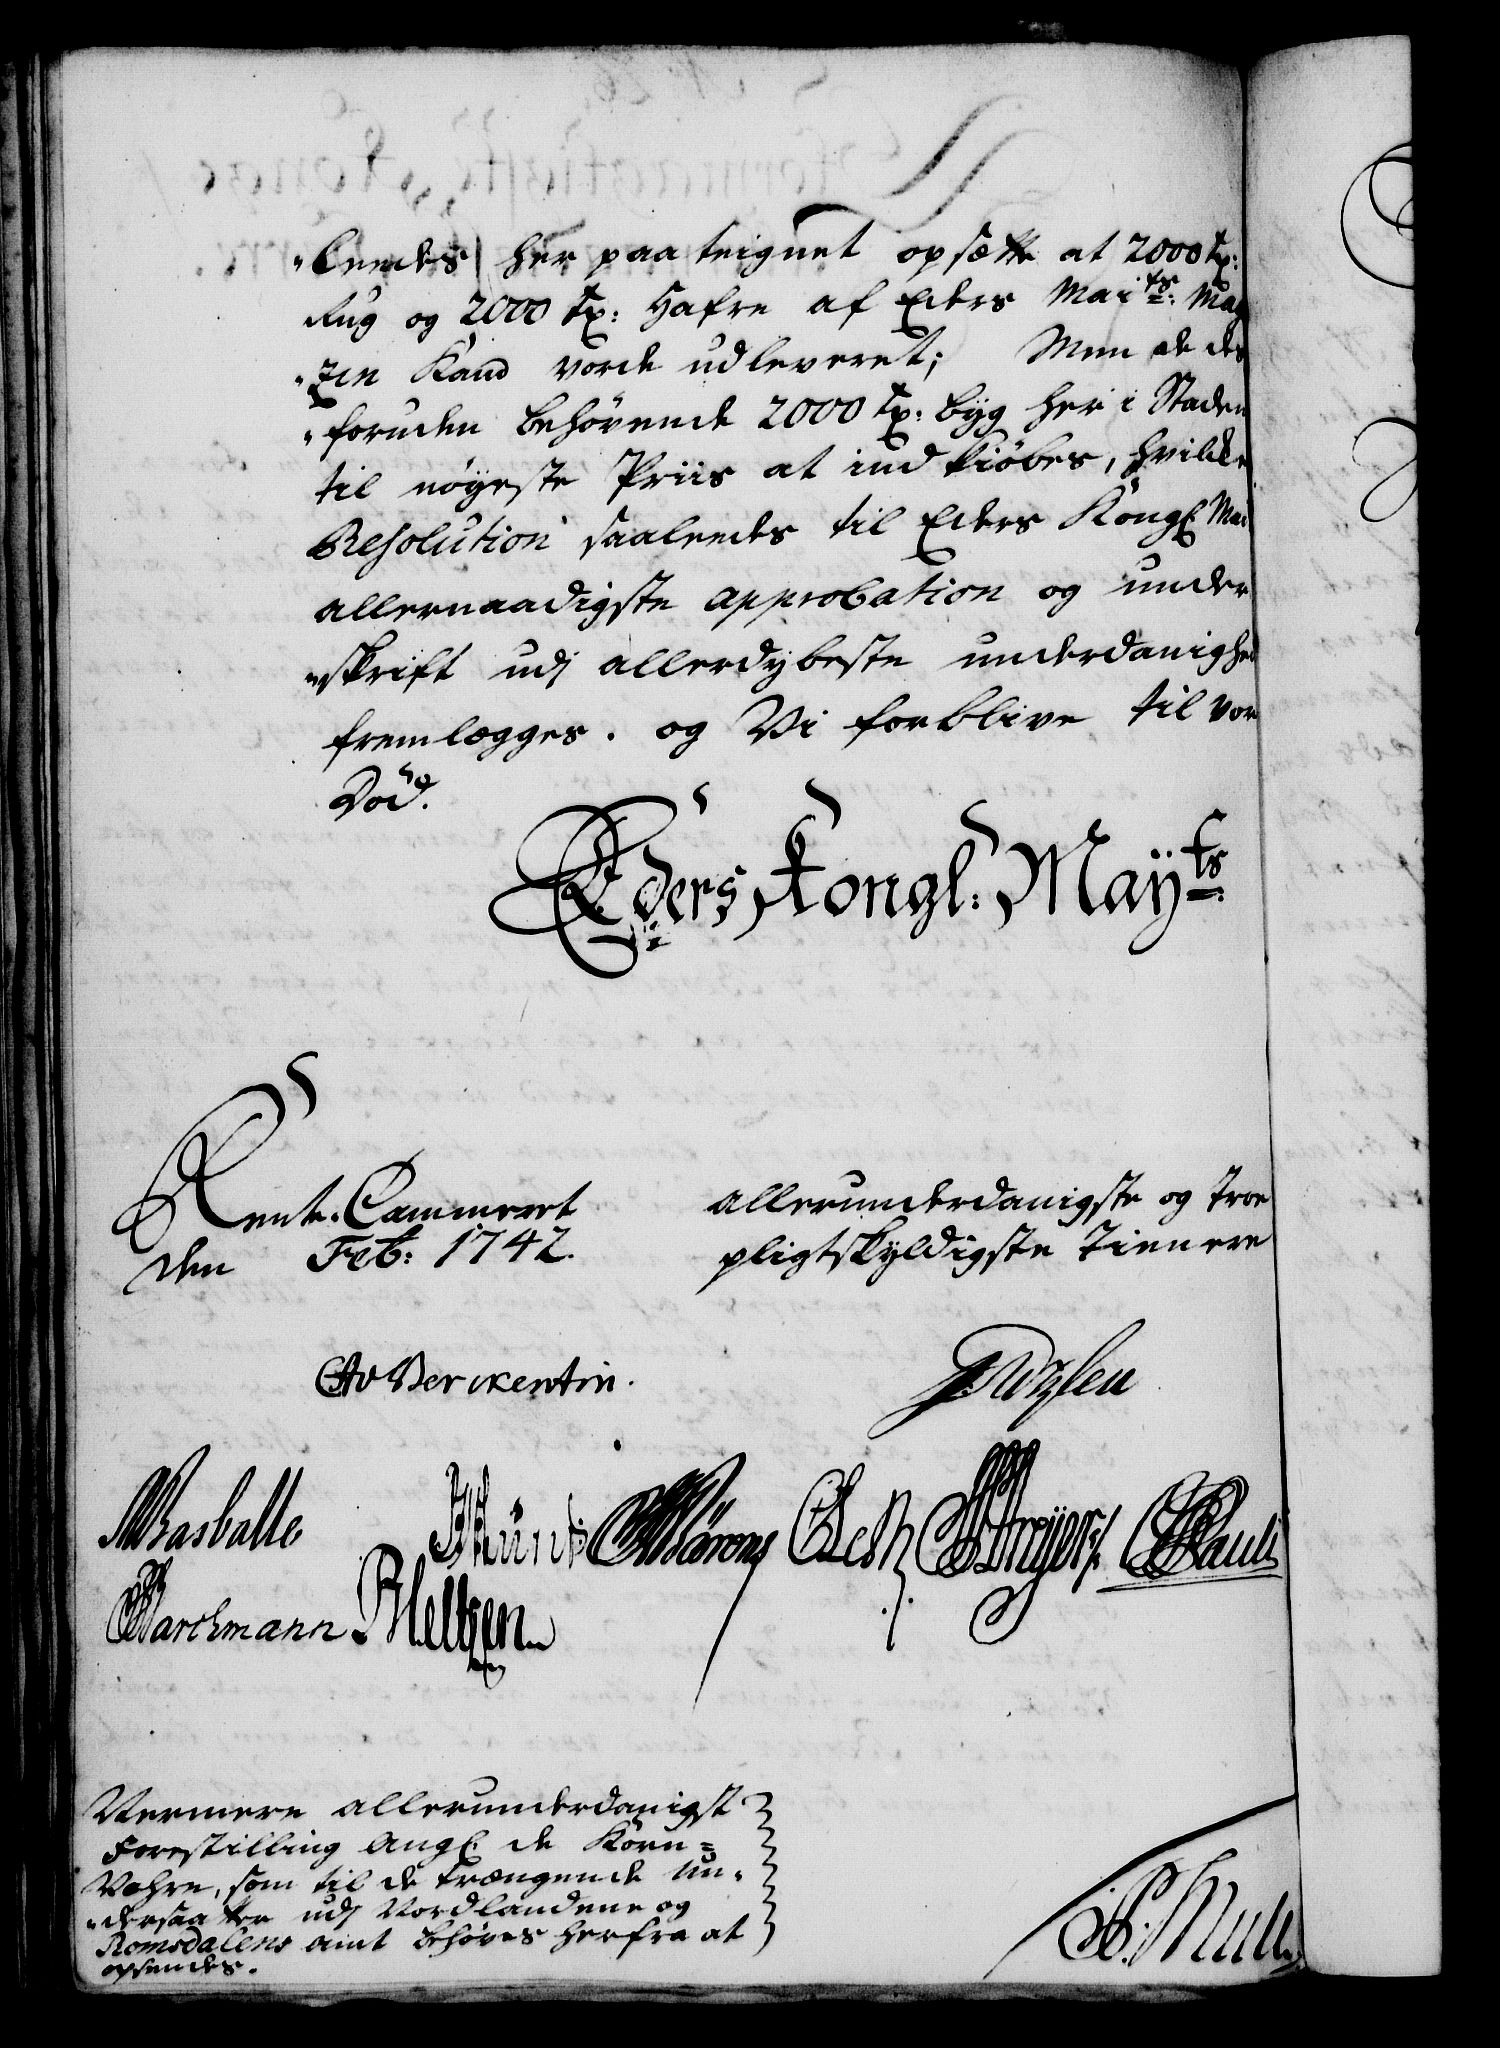 "leedes her paa teignet opsætte at 2000 Tr:
Rug og 2000 Tr: Hafre af Eders Maits: Mag
"zin Kand vorde udleveret; Men de des
"foruden behövende 2000 Tr: byg her i Staden
til nöyeste Priis at ind kiöbes, hvilken
Resolution saaleedes til Eders Kongl Mai
allernaadigste approbation og under
"skrift udj allerdybeste underdanighed
fremlegges. og Vi forblive til vor
Död.
Eders Kongl: Mayts:
Rente-Cammeret
den Feb: 1742.
allerunderdanigste og troe
pligtskyldigste Tienere
CAv Berckentin.
Basballe
Barchmann
Meltzen
Pauli
Vermere allerunderdanigst
Forestilling angl de Korn=
Vahre, som til de trængende Un"
"dersaatter udj Nordlandene og
Romsdalens amt behöves herfra at
opsendes.